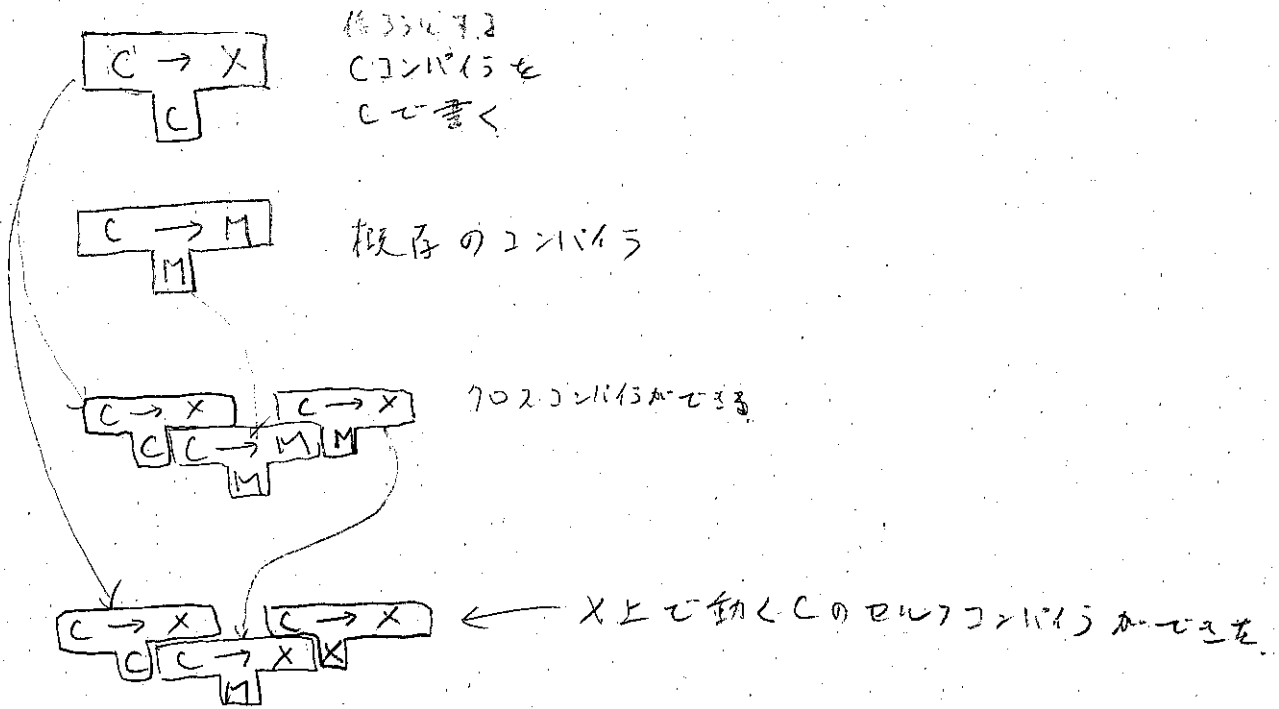 C → X
C
Cコンパイラを
Cで書く
C → M
M
概存のコンパイラ
C → X C → X
C C → M M
M
クロスコンパイラができる
C → X C → X
C C → X X
M
X上で動くCのセルフコンパイラができた.